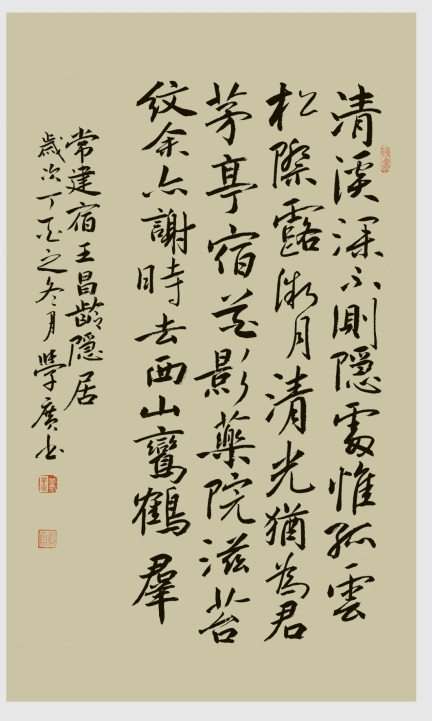 清溪深不測隱處惟孤雲
松際露微月清光猶為君
茅亭宿花影藥院滋苔
紋余亦謝時去西山鸞鶴羣
常建宿王昌齡隱居
歲次丁亥之冬月學廣书